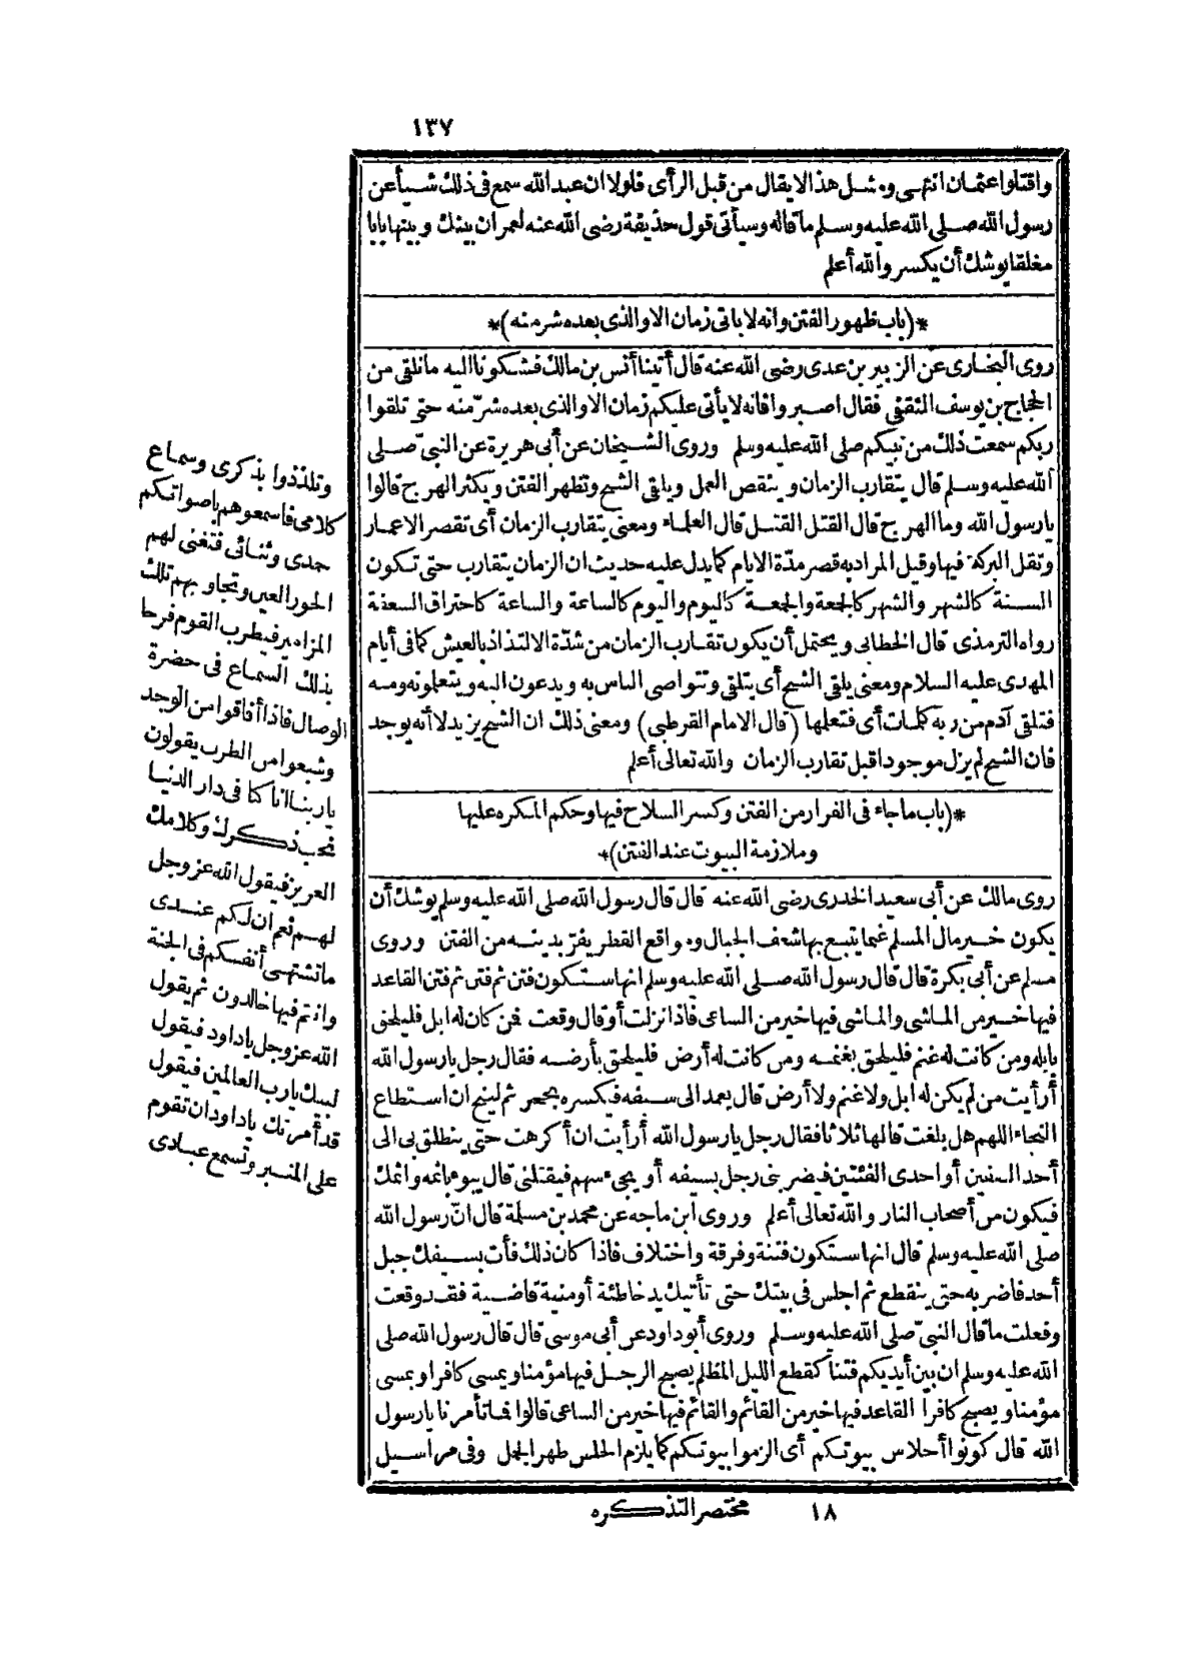 ١٣٧
واقتلوا عثمان انتهى ومثل هذا لا يقال من قبل الرأى فلولا ان عبد الله سمع فى ذلك شيأ عن
رسول الله صلى الله عليه وسلم ما قاله وسيأتى قول حذيفة رضى الله عنه لعمر ان بينك وبينها بابا
مغلقا يوشك أن يكسر والله أعلم
*(باب ظهور الفتن وانه لا يأتى زمان الا والذى بعده شر منه)*
روى البخارى عن الزبير بن عدى رضى الله عنه قال أتينا أنس بن مالك فشكونا اليه ما نلقى من
الحجاج بن يوسف الثقفى فقال اصبروا فانه لا يأتى عليكم زمان الا والذى بعده شرّ منه حتى تلقوا
ربكم سمعت ذلك من نبيكم صلى الله عليه وسلم وروى الشيخان عن أبى هريرة عن النبىّ صلى
الله عليه وسلم قال يتقارب الزمان وينقص العمل ويلقى الشح وتظهر الفتن ويكثر الهرج قالوا
يا رسول الله وما الهرج قال القتل القتل قال العلماء ومعنى يتقارب الزمان أى تقصر الاعمار
وتقل البركة فيها وقيل المراد به قصر مدّة الايام كما يدل عليه حديث ان الزمان يتقارب حتى تكون
السنة كالشهر والشهر كالجمعة والجمعة كاليوم واليوم كالساعة والساعة كاحتراق السعفة
رواه الترمذى قال الخطابى ويحتمل أن يكون تقارب الزمان من شدّة الالتذاذ بالعيش كما فى أيام
المهدى عليه السلام ومعنى يلقى الشح أى يتلقى وتتواصى الناس به ويدعون اليه ويتعلمونه ومنه
فتلقى آدم من ربه كلمات أى فتعلمها (قال الامام القرطبى) ومعنى ذلك ان الشح يزيد لا أنه يوجد
فان الشح لم يزل موجودا قبل تقارب الزمان والله تعالى أعلم
*(باب ما جاء فى الفرار من الفتن وكسر السلاح فيها وحكم المكره عليها
وملازمة البيوت عند الفتن)*
روى مالك عن أبى سعيد الخدرى رضى الله عنه قال قال رسول الله صلى الله عليه وسلم يوشك أن
يكون خير مال المسلم غنما يتبع بها شعف الجبال ومواقع القطر يفرّ بدينه من الفتن وروى
مسلم عن أبى بكرة قال قال رسول الله صلى الله عليه وسلم انها ستكون فتن ثم فتن ثم فتن القاعد
فيها خير من الماشى والماشى فيها خير من الساعى فاذا نزلت أو قال وقعت فمن كان له ابل فليلحق
بابله ومن كانت له غنم فليلحق بغنمه ومن كانت له أرض فليلحق بأرضه فقال رجل يا رسول الله
أرأيت من لم يكن له ابل ولا غنم ولا أرض قال يعمد الى سيفه فيكسره بحجر ثم لينج ان استطاع
النجاء اللهم هل بلغت قالها ثلاثا فقال رجل يا رسول الله أرأيت ان أكرهت حتى ينطلق بى الى
أحد الصفين أو احدى الفئتين فيضربنى رجل بسيفه أو يجىء سهم فيقتلنى قال يبوء باثمه واثمك
فيكون من أصحاب النار والله تعالى أعلم وروى ابن ماجه عن محمد بن مسلمة قال انّ رسول الله
صلى الله عليه وسلم قال انها ستكون فتنة وفرقة واختلاف فاذا كان ذلك فأت بسيفك جبل
أحد فاضربه حتى ينقطع ثم اجلس فى بيتك حتى تأتيك يد خاطئة أو منية قاضية فقد وقعت
وفعلت ما قال النبىّ صلى الله عليه وسلم وروى أبو داود عن أبى موسى قال قال رسول الله صلى
الله عليه وسلم ان بين أيديكم فتنا كقطع الليل المظلم يصبح الرجل فيها مؤمنا ويمسى كافرا ويمسى
مؤمنا ويصبح كافرا القاعد فيها خير من القائم والقائم فيها خير من الساعى قالوا فما تأمرنا يا رسول
الله قال كونوا أحلاس بيوتكم أى الزموا بيوتكم كما يلزم الحلس ظهر الجمل وفى مراسيل
وتلذذوا بذكرى وسماع
كلامى فاسمعوهم باصواتكم
حمدى وثنائى فتغنى لهم
الحور العين وتجاوبهم تلك
المزامير فيطرب القوم فرحا
بذلك السماع فى حضرة
الوصال فاذا أفاقوا من الوجد
وشبعوا من الطرب يقولون
يا ربنا انا كنا فى دار الدنيا
نحب ذكرك وكلامك
العزيز فيقول الله عز وجل
لهم نعم ان لكم عندى
ما تشتهى أنفسكم فى الجنة
وانتم فيها خالدون ثم يقول
الله عز وجل يا داود فيقول
لبيك يا رب العالمين فيقول
قد أمرتك يا داود ان تقوم
على المنبر وتسمع عبادى
١٨ مختصر التذكره